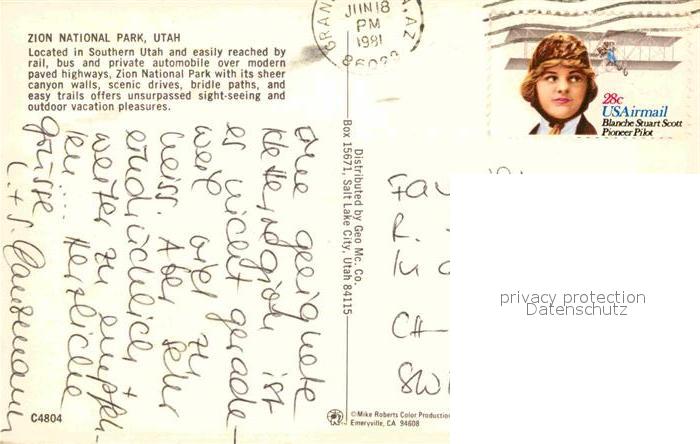 ZION NATIONAL PARK, UTAH
Located in Southern Utah and easily reached by
rail, bus and private automobile over modern
paved highways, Zion National Park with its sheer
canyon walls, scenic drives, bridle paths, and
easy trails offers unsurpassed sight-seeing and
outdoor vacation pleasures.
JUN 18
PM
1981
28c
USAirmail
Blanche Stuart Scott
Pioneer Pilot
geeignete
ist
es nicht gerade
weil zu
heiss. Aber sehr
eindrücklich +
weiter zu empfeh-
len.... Herzliche
Grüsse
Distributed by Geo Mc. Co.
Box 15671, Salt Lake City, Utah 84115
R.
CH
SWI
privacy protection
Datenschutz
C4804
©Mike Roberts Color Production
Emeryville, CA 94608